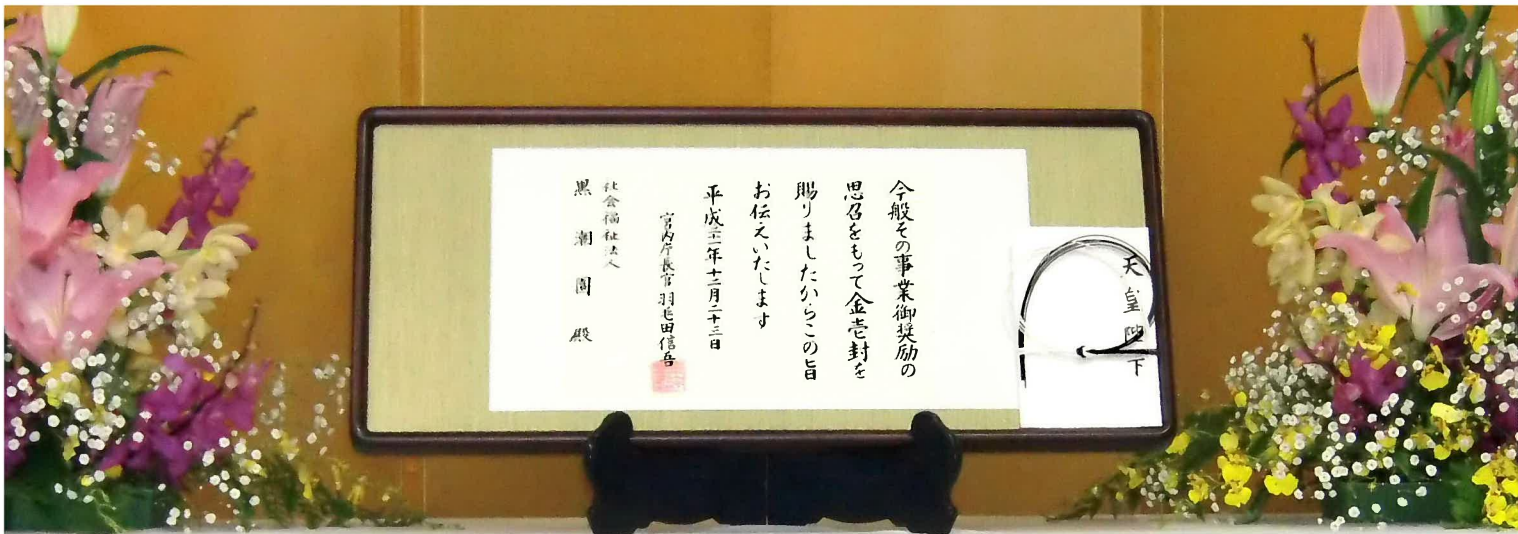 天皇陛下
今般その事業御奨励の
思召をもって金壱封を
賜りましたからこの旨
お伝えいたします
平成二十一年十二月二十三日
宮内庁長官 羽毛田信吾
社会福祉法人
黒潮園 殿